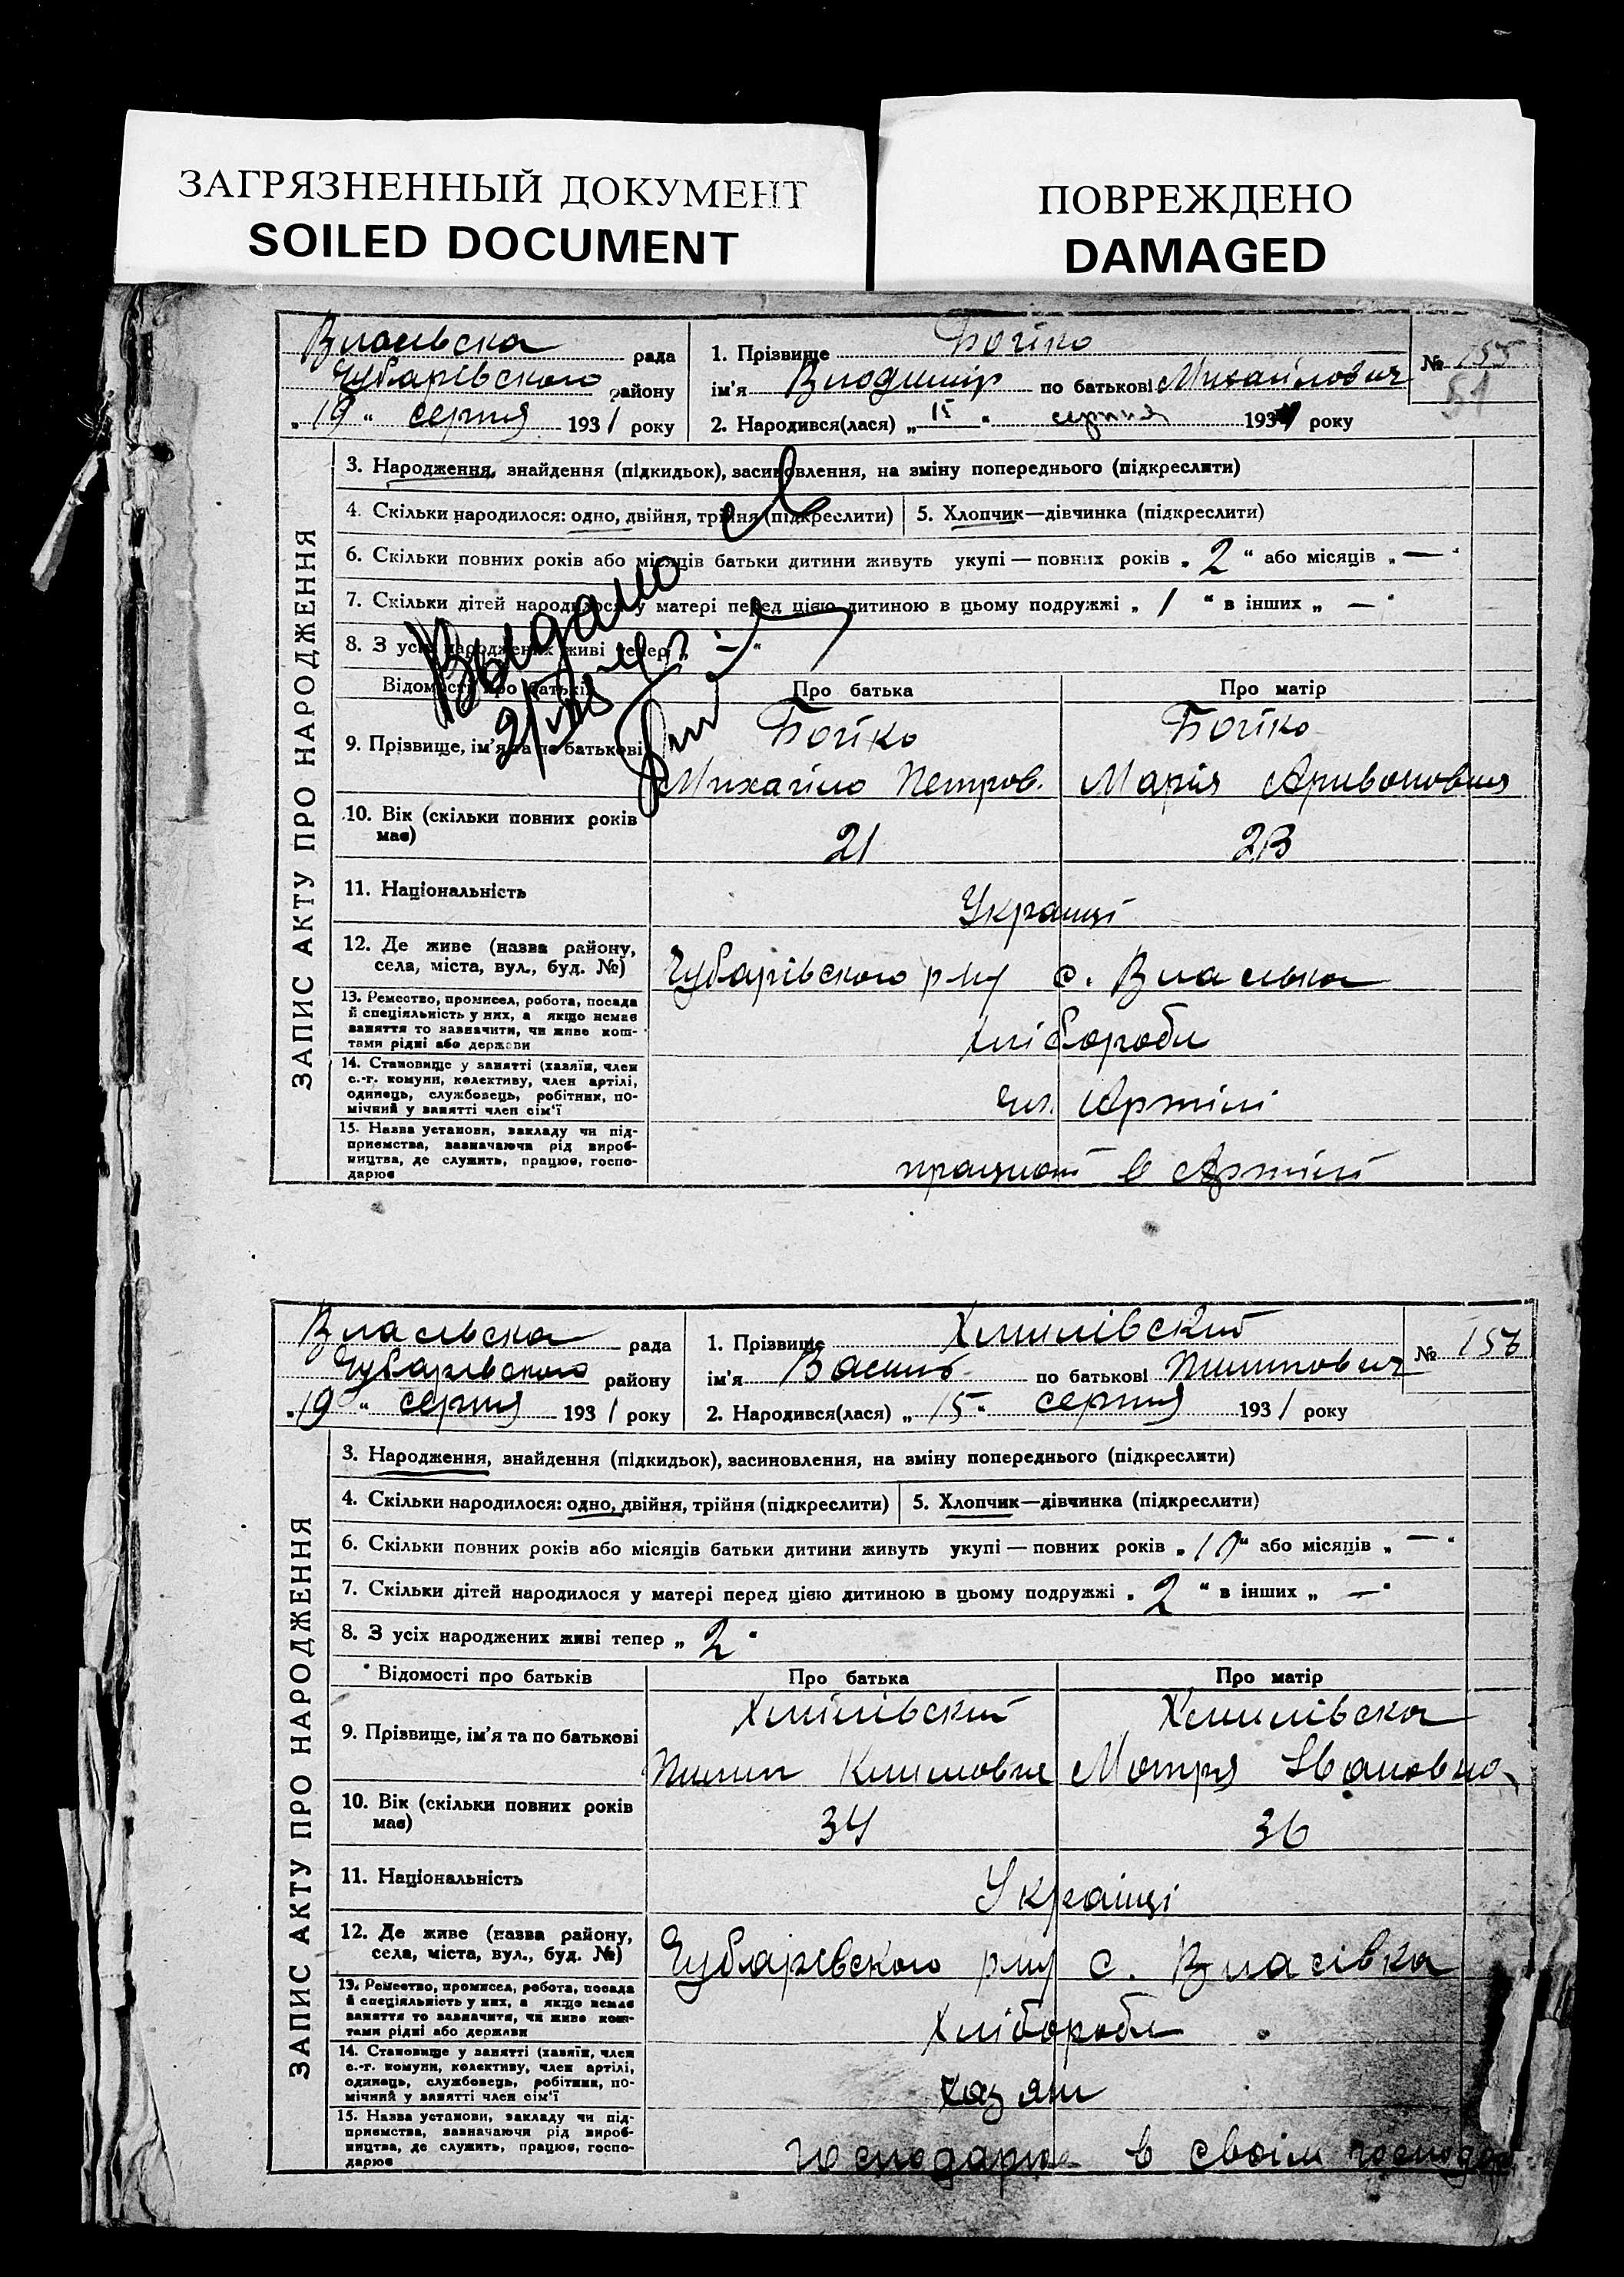 ЗАГРЯЗНЕННЫЙ ДОКУМЕНТ
SOILED DOCUMENT
ПОВРЕЖДЕНО
DAMAGED
ЗАПИС АКТУ ПРО НАРОДЖЕННЯ
рада
Чубарівського району
„19“ серпня 1931 року
1. Прізвище Бойко
№ 155
51
ім'я Влодимір по батькові Михайлович
2. Народився(лася) „15“ серпня 1931 року
3. Народження, знайдення (підкидьок), засиновлення, на зміну попереднього (підкреслити)
4. Скільки народилося: одно, двійня, трійня (підкреслити)
5. Хлопчик—дівчинка (підкреслити)
6. Скільки повних років або місяців батьки дитини живуть укупі — повних років „2“ або місяців „—“
7. Скільки дітей народилося у матері перед цією дитиною в цьому подружжі „1“ в інших „—“
8. З усіх народжених живі тепер „—“
Выдано
Відомості про батьків
Про батька
Про матір
9. Прізвище, ім'я та по батькові
Бойко
Михайло Петров.
Бойко
Марія
10. Вік (скільки повних років має)
21
23
11. Національність
Українці
12. Де живе (назва району, села, міста, вул., буд. №)
Чубарівського р-ну с.
13. Ремество, промисел, робота, посада
й спеціяльність у них, а якщо немає
заняття то зазначити, чи живе кош-
тами рідні або держави
хлібороби
14. Становище у занятті (хазяїн, член
с.-г. комуни, колективу, член артілі,
одинець, службовець, робітник, по-
мічний у занятті член сім'ї
чл. Артілі
15. Назва установи, закладу чи під-
приємства, зазначаючи рід вироб-
ництва, де служить, працює, госпо-
дарює
працюют в Артілі
ЗАПИС АКТУ ПРО НАРОДЖЕННЯ
рада
Чубарівського району
„19“ серпня 1931 року
1. Прізвище Хмилівский
№ 156
ім'я Василь по батькові Пилипович
2. Народився(лася) „15“ серпня 1931 року
3. Народження, знайдення (підкидьок), засиновлення, на зміну попереднього (підкреслити)
4. Скільки народилося: одно, двійня, трійня (підкреслити)
5. Хлопчик—дівчинка (підкреслити)
6. Скільки повних років або місяців батьки дитини живуть укупі — повних років „10“ або місяців „—“
7. Скільки дітей народилося у матері перед цією дитиною в цьому подружжі „2“ в інших „—“
8. З усіх народжених живі тепер „2“
Відомості про батьків
Про батька
Про матір
9. Прізвище, ім'я та по батькові
Хмилівский
Пилип Климович
Хмилівска
Мотря Івановна
10. Вік (скільки повних років має)
34
36
11. Національність
Українці
12. Де живе (назва району, села, міста, вул., буд. №)
Чубарівського р-ну с. Власівка
13. Ремество, промисел, робота, посада
й спеціяльність у них, а якщо немає
заняття то зазначити, чи живе кош-
тами рідні або держави
Хлібороби
14. Становище у занятті (хазяїн, член
с.-г. комуни, колективу, член артілі,
одинець, службовець, робітник, по-
мічний у занятті член сім'ї
хазяїн
15. Назва установи, закладу чи під-
приємства, зазначаючи рід вироб-
ництва, де служить, працює, госпо-
дарює
господарює в своїм господар